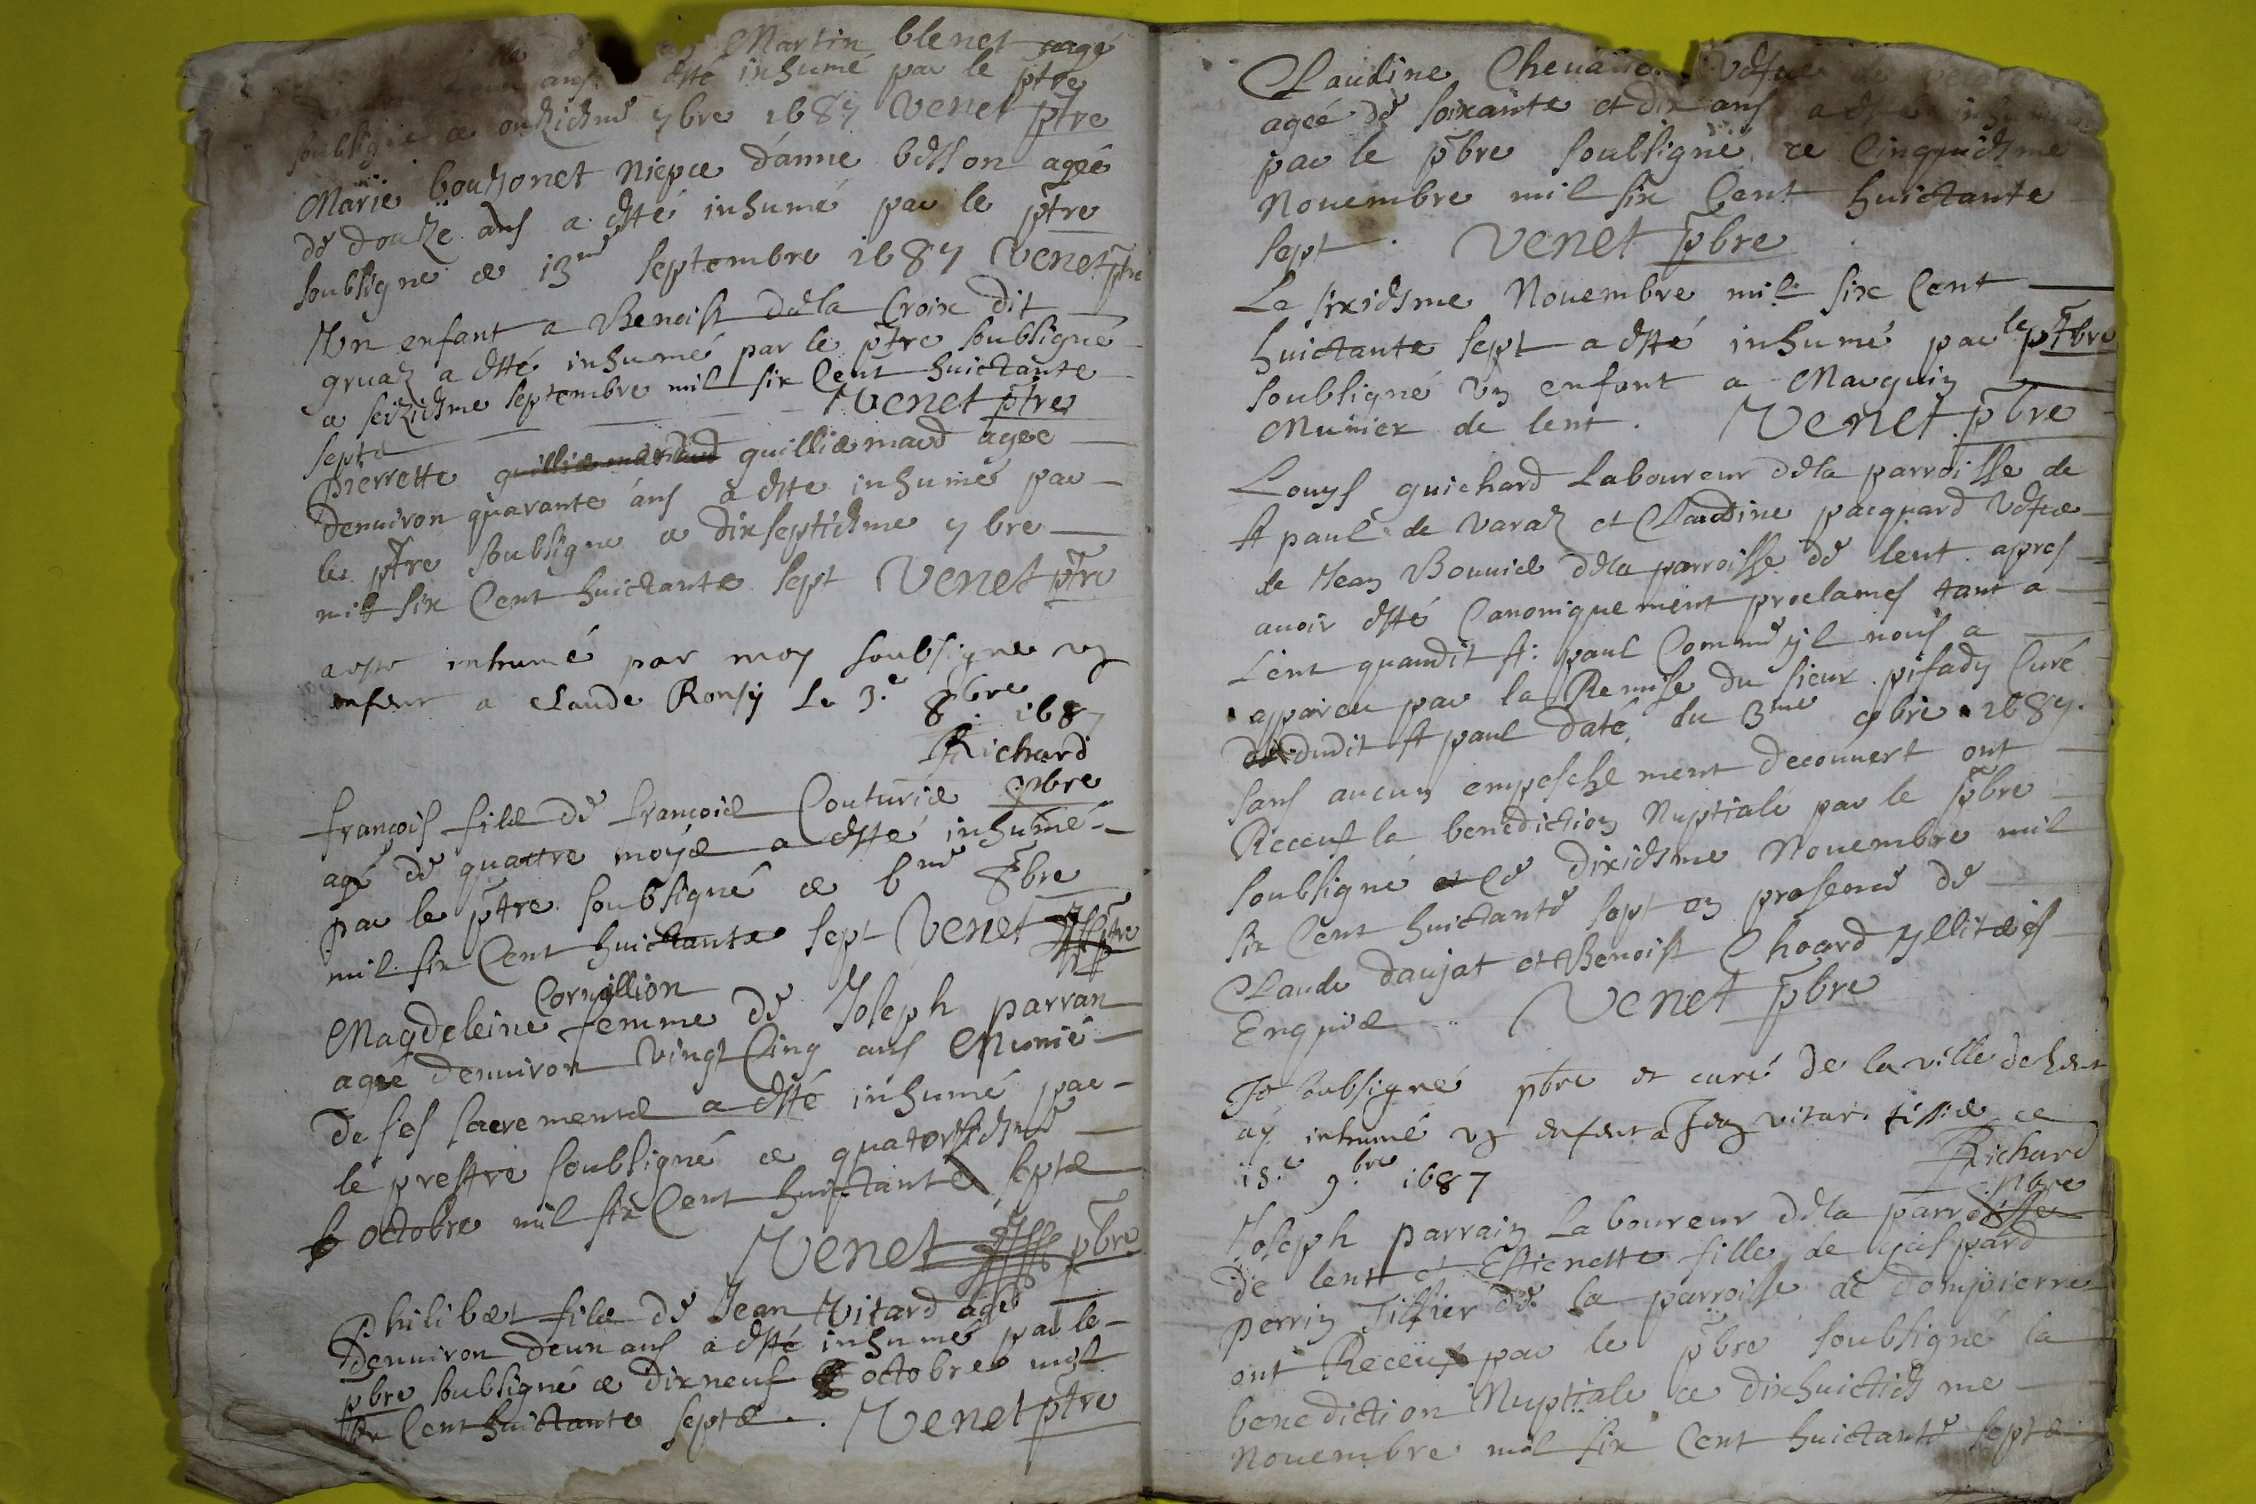 Martin blenet aagé
ans esté inhumé par le ptre
soubsigné ce onziesme 7bre 1687 Venet ptre
Marie bouzonet niepce d'anne besson agée
de douze ans a esté inhumé par le ptre
soubsigne ce 13me septembre 1687 Venet ptre
Un enfant a Benoist dela Croix dit
gruaz a esté inhumé par le ptre soubsigné
ce seiziesme septembre mil six Cent huictante
septe Venet ptre
pierrette quilliemard agee
denuiron quarante ans a este inhumé par
le ptre soubsigne ce dixseptiesme 7bre
mil six Cent huictante sept Venet ptre
a este inhumé par moy soubsigne un
enfant a Claude Ronsy Le 3.e 8bre 1687
Richard
pbre
françois fils de françois Couturie
agé de quattre moys a esté inhumé
par le ptre soubsigné ce 6me 8bre
mil six Cent huictante sept Venet ptre
Cornillion
Magdeleine femme de Joseph parran
agée denuiron vingt Cinq ans Munie
de ses sacrements a esté inhumé par
le prestre soubsigné ce quatorziesme
octobre mil six Cent huictante septe
Venet pbre
Philibert fils de Jean Vitard agé
denuiron deun ans a esté inhumé par le
pbre soubsigné ce dixneuf octobre mil
six Cent huictante septe. Venet ptre
Claudine vefue de
agée de soixante et dix ans a esté inhumée
par le pbre soubsigné ce Cinquiesme
Nouembre mil six Cent huictante
sept. Venet pbre
Le sixiesme Nouembre mil six Cent
huictante sept a esté inhumé par le ptbre
soubsigné un enfant a Marquin
Munier de lent. Venet pbre
Louys guichard Laboureur dela parroisse de
st paul de varaz et Claudine pacquard vefue
de Jean Bouuie dela parroisse de lent apres
auoir esté Canoniquement proclames tant a
Lent quaudit st: paul Comme yl nous a
appareu par la Remise du sieur pisady Curé
dudit st paul daté du 3me 9bre 1687.
sans aucun empeschement decouuert ont
Receus la benediction Nuptiale par le pbre
soubsigné ce dixiesme Nouembre mil
six Cent huictante sept en presence de
Claude daujat et Benoist Choard yllitres
Enquis Venet pbre
Je soubsigné pbre et curé de la ville de Lent
ay inhumé un enfant a Jean vitar tissie ce
15.e 9.bre 1687 Richard
pbre
Joseph parrain Laboureur dela parroisse
de lent et Estienette fille de gaspard
perrin Tissier de la parroisse de dompierre
ont Receus par le pbre soubsigné la
benediction Nuptiale ce dixhuictiesme
Nouembre mil six Cent huictante septe